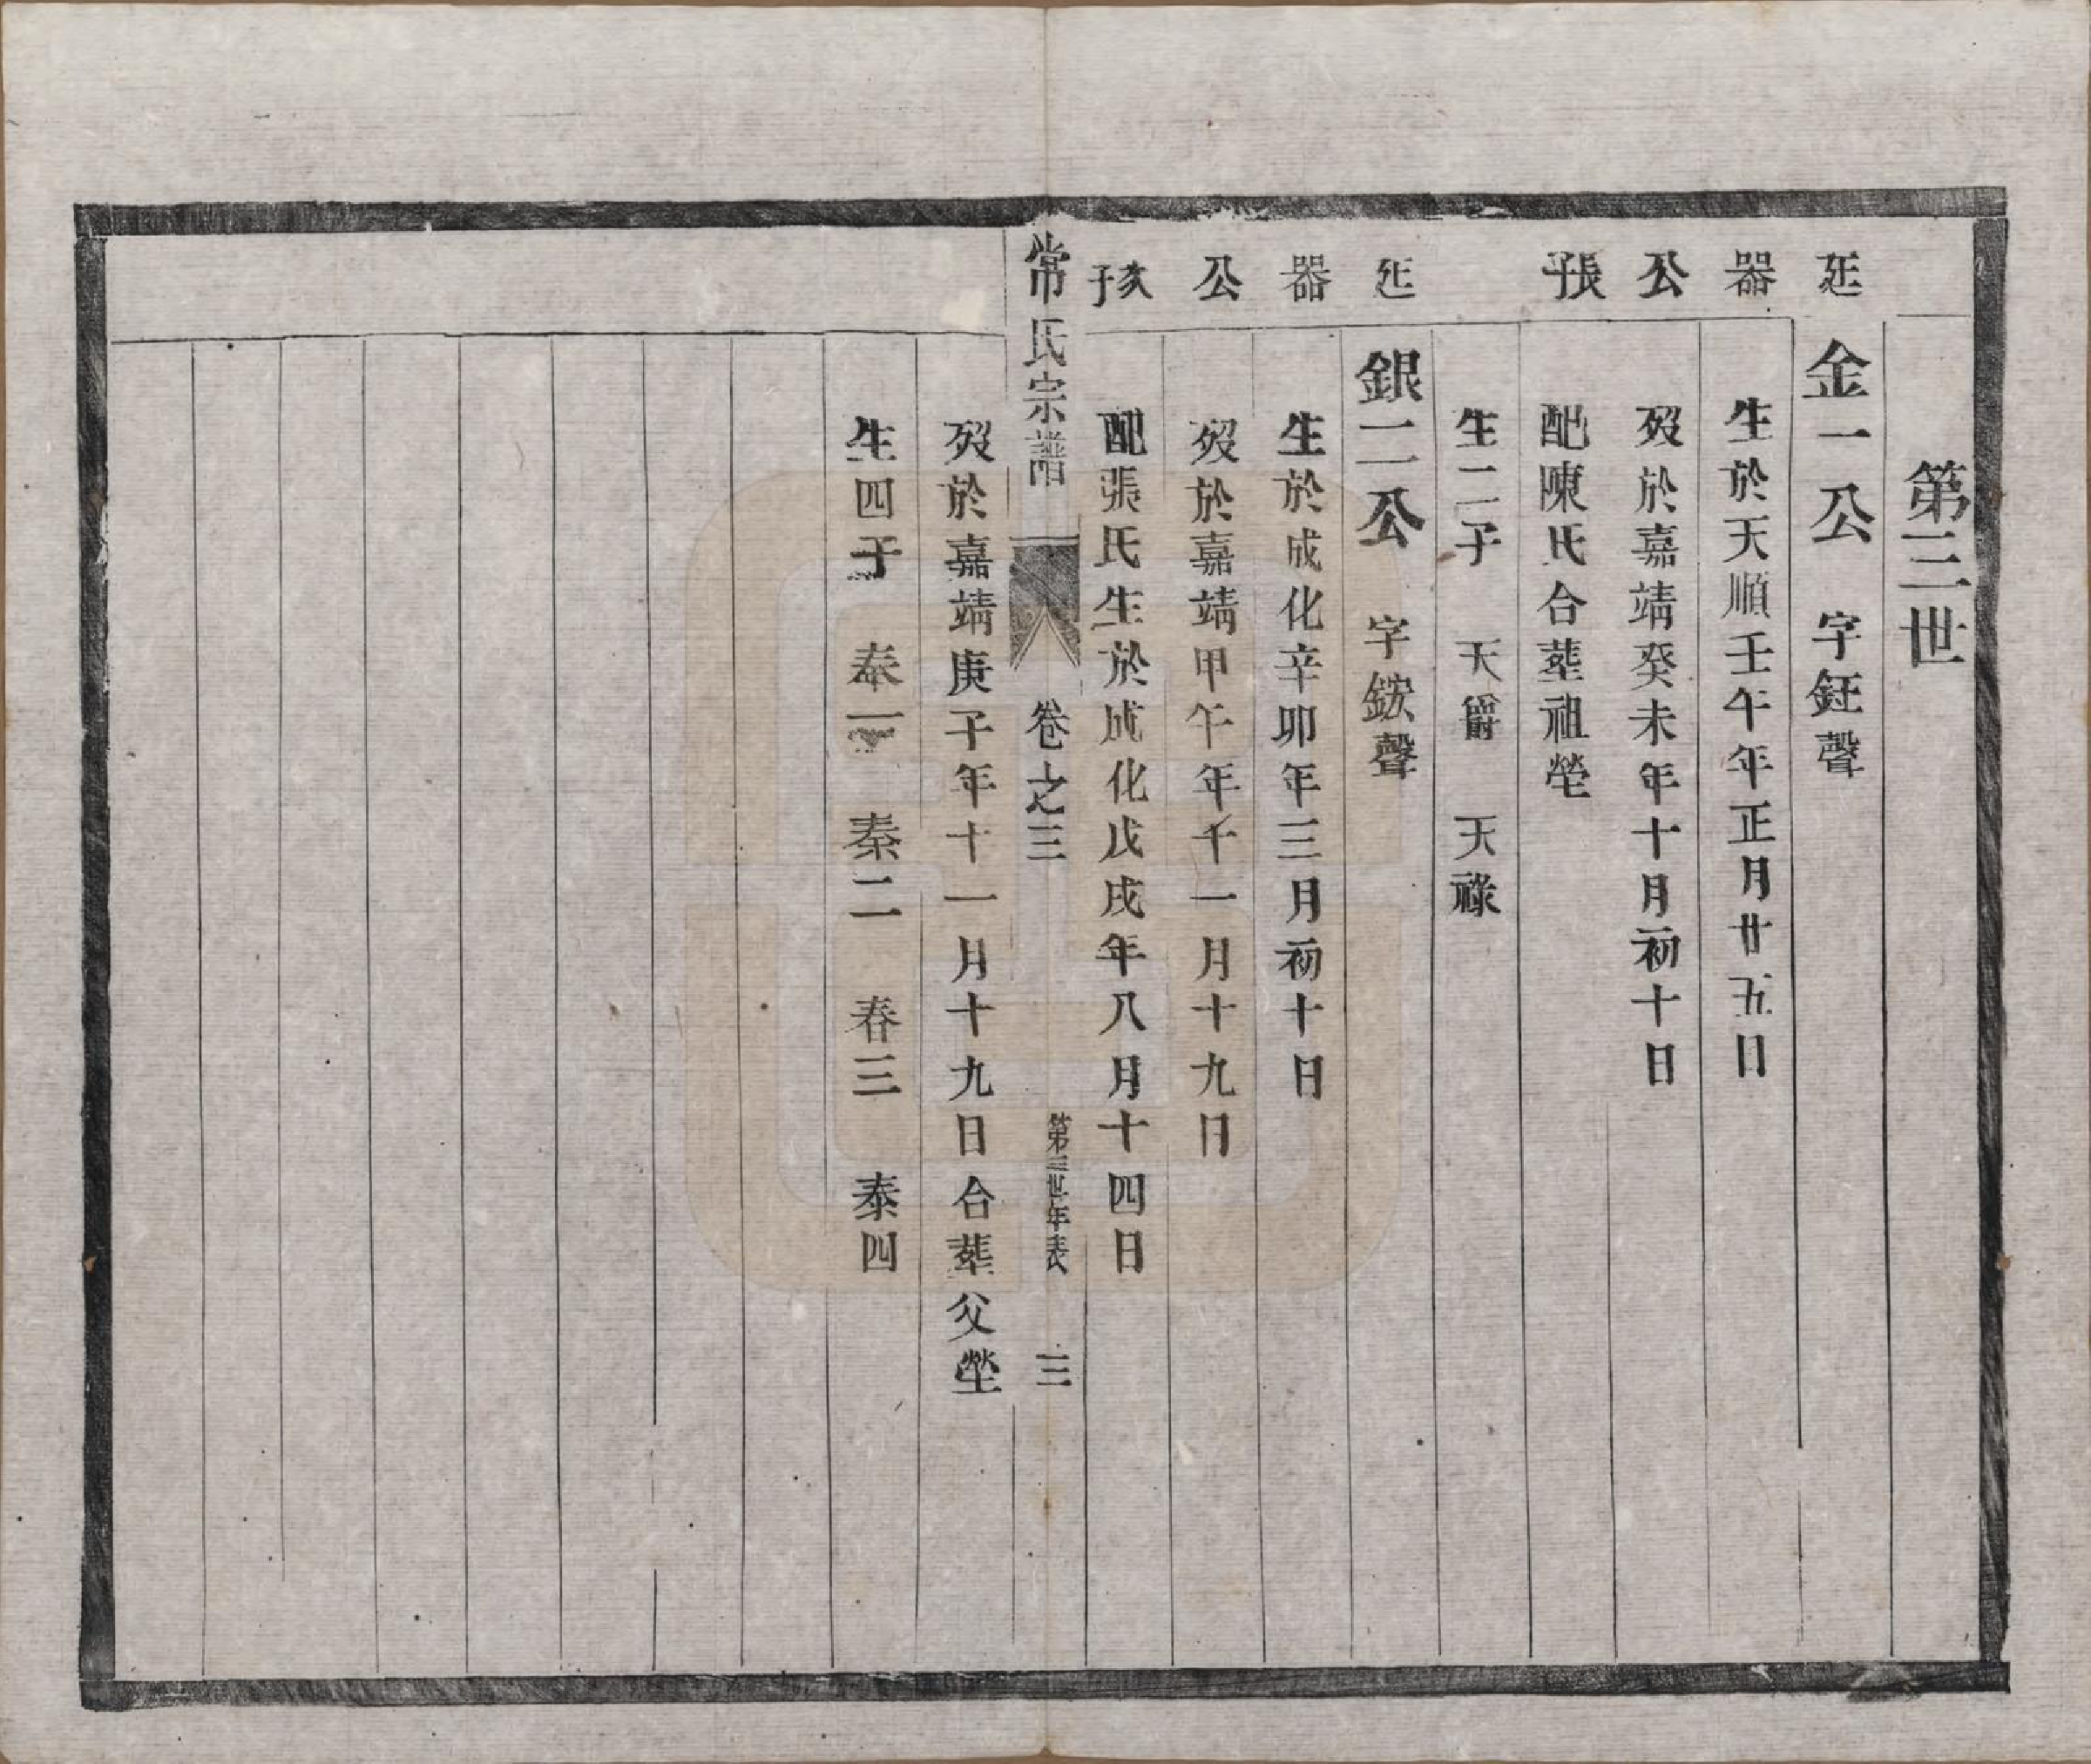 第三世
廷 金一公 字鈺聲
器 生於天順壬午年正月廿五日
公 歿於嘉靖癸未年十月初十日
長子 配陳氏合塟祖塋
生二子 天爵 天祿
廷 銀二公 字鋐聲
器 生於成化辛卯年三月初十日
公 歿於嘉靖甲午年十一月十九日
次子 配張氏生於成化戊戌年八月十四日
常氏宗譜 卷之三 第三世年表 三
歿於嘉靖庚子年十一月十九日合塟父塋
生四子 奉一 秦二 春三 泰四